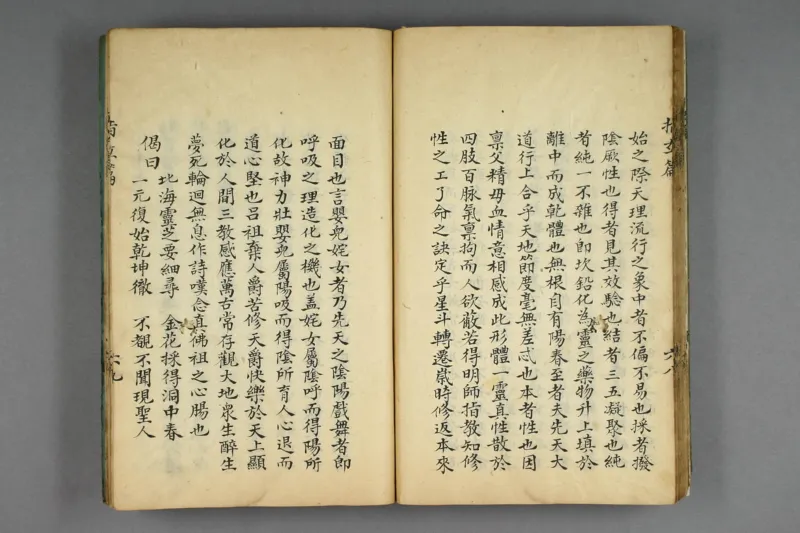 指玄篇
六八
始之際天理流行之象中者不偏不易也採者撥
陰厥性也得者見其效驗也結者三五凝聚也純
者純一不雜也即坎鉛化為靈之藥物升上填於
離中而成乾體也無根自有陽春至者夫先天大
道行上合乎天地節度毫無差忒也本者性也因
禀父精母血情意相感成此形體一靈真性散於
四肢百脉氣禀拘而人欲蔽若得明師指教知修
性之工了命之訣定乎星斗轉遷歲時修返本來
面目也言嬰兒姹女者乃先天之陰陽戲舞者即
呼吸之理造化之機也蓋姹女屬陰呼而得陽所
化故神力壯嬰兒屬陽吸而得陰所育人心退而
道心堅也呂祖棄人爵苦修天爵快樂於天上顯
化於人間三教感應萬古常存觀大地衆生醉生
夢死輪迴無息作詩嘆念真佛祖之心腸也
北海靈芝要細尋 金花採得洞中春
偈曰
一元復始乾坤徹 不覩不聞現聖人
指玄篇
六九